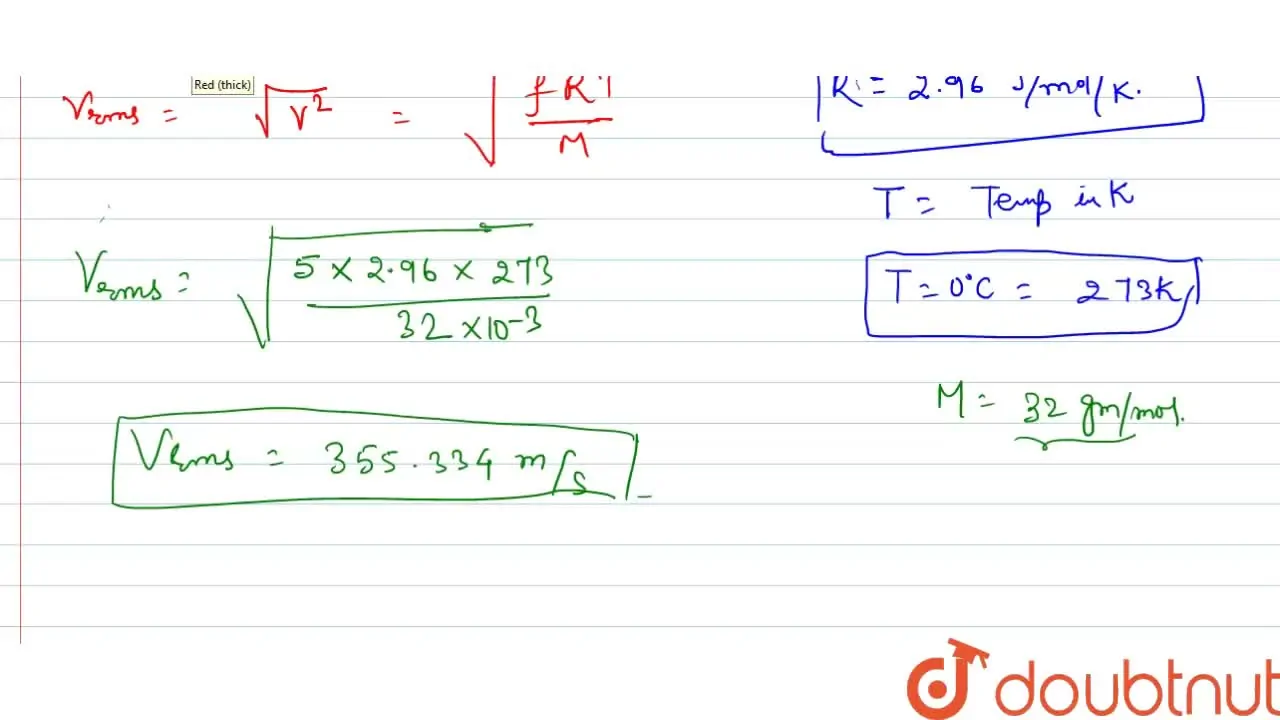 Red (thick)
Vrms = √V² = √fRT/M
R = 2.96 J/mol/K.
T = Temp in K
Vrms = √5 × 2.96 × 273 / 32 × 10⁻³
T = 0°C = 273K
M = 32 gm/mol.
Vrms = 355.334 m/s
doubtnut